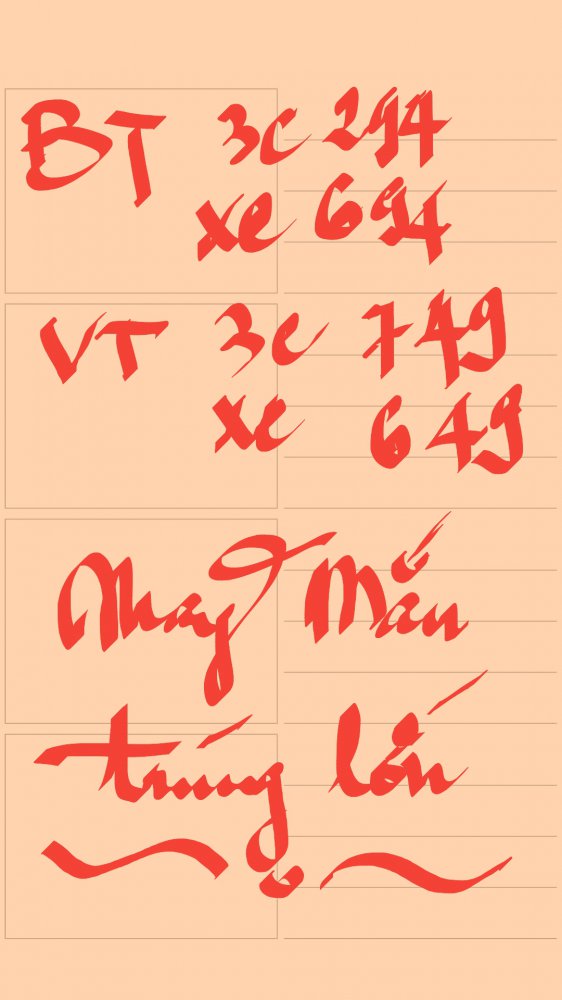 BT 3c 294
xc 694
VT 3c 749
xc 649
May Mắn
trúng lớn